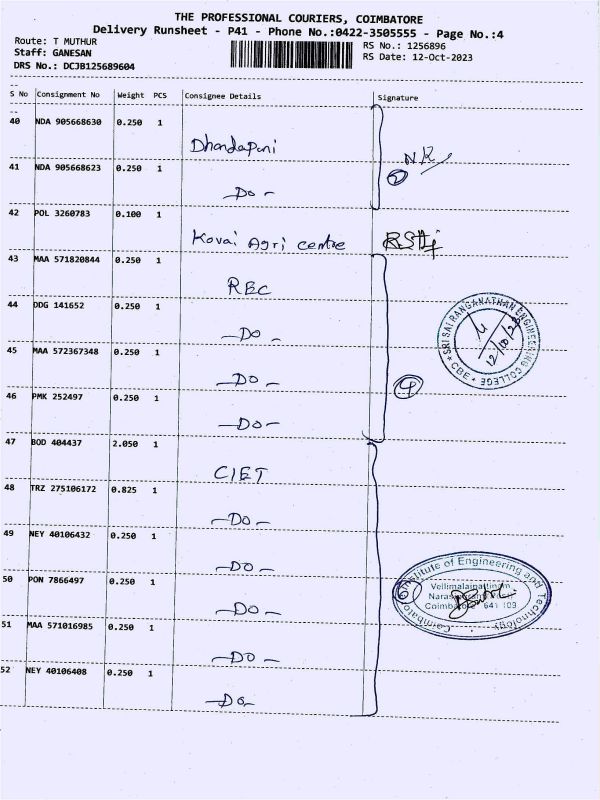 THE PROFESSIONAL COURIERS, COIMBATORE
Delivery Runsheet - P41 - Phone No.:0422-3505555 - Page No.:4
Route: T MUTHUR
RS No.: 1256896
Staff: GANESAN
RS Date: 12-Oct-2023
DRS No.: DCJB125689604
S No Consignment No Weight PCS Consignee Details Signature
40 NDA 905668630 0.250 1
Dhandapani
41 NDA 905668623 0.250 1
-Do-
2
42 POL 3260783 0.100 1
Kovai Agri centre
43 MAA 571820844 0.250 1
REC
44 DDG 141652 0.250 1
-Do
SRI SAI RANGANATHAN ENGINEERING COLLEGE * CBE *
12/10/23
45 MAA 572367348 0.250 1
-Do-
4
46 PMK 252497 0.250 1
-Do-
47 BOD 404437 2.050 1
CIET
48 TRZ 275106172 0.825 1
-Do-
49 NEY 40106432 0.250 1
-Do-
Coimbatore Institute of Engineering and Technology
Vellimalaipattinam
Coimbatore 641 109
50 PON 7866497 0.250 1
-Do-
51 MAA 571016985 0.250 1
-Do-
52 NEY 40106408 0.250 1
-Do-